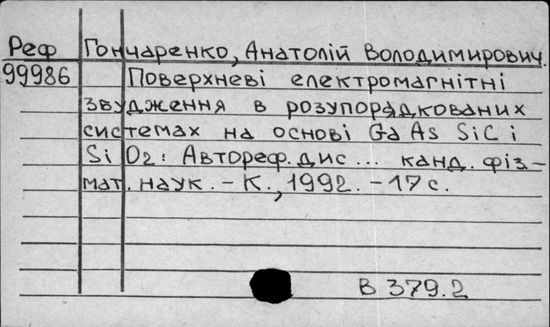 Реф Гончаренко, Анатолій Володимирович.
99986 Поверхневі електромагнітні
звудження в розупорядкованих
системах на основі GaAs SiC і
SiO2: Автореф. дис... канд. фіз.-
мат. наук. - К., 1992. - 17 с.
В 379.2